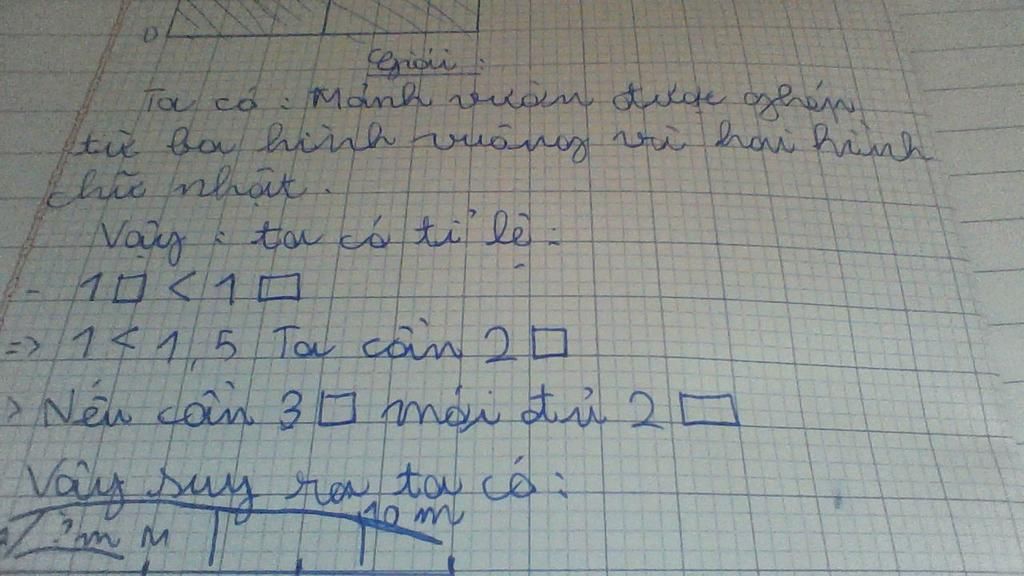 D
Giải :
Ta có : Mảnh vườn được ghép
từ ba hình vuông và hai hình
chữ nhật.
Vậy : ta có tỉ lệ :
- 1 □ < 1 ▭
=> 1 < 1,5 Ta cần 2 □
> Nếu cần 3 □ mới đủ 2 ▭
Vậy suy ra ta có :
10 m
M